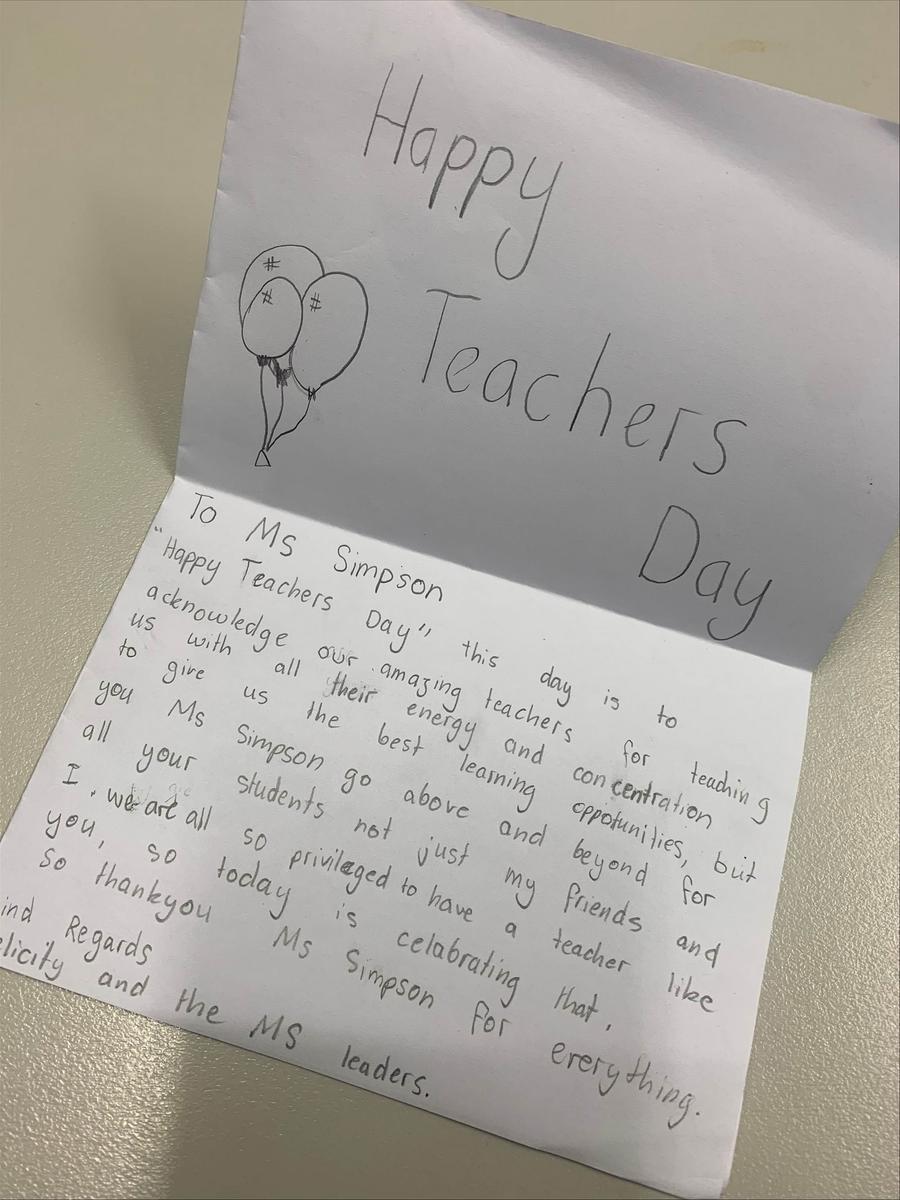 Happy
Teachers
Day
To Ms Simpson
"Happy Teachers Day" this day is to
acknowledge our amazing teachers for teaching
us with all their energy and concentration
to give us the best learning oppotunities, but
you Ms Simpson go above and beyond for
all your students not just my friends and
I. we are all so privilaged to have a teacher like
you, so today is celabrating that.
So thankyou Ms Simpson for everything.
ind Regards
elicity and the MS leaders.